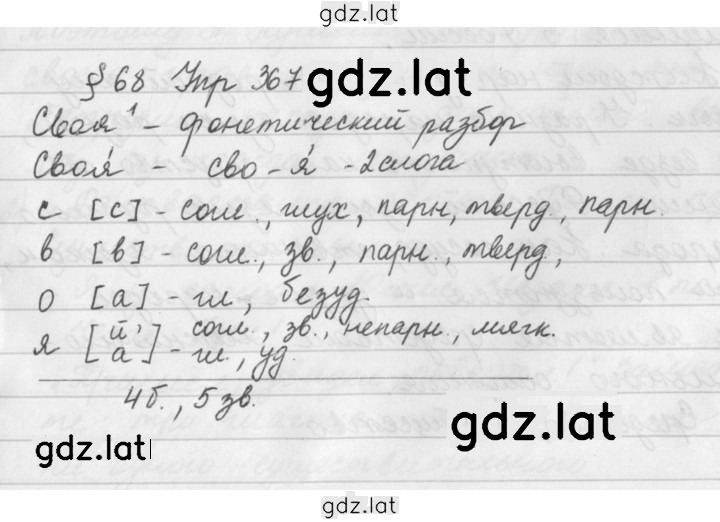 gdz.lat
§ 68 Упр 367
gdz.lat
Своя¹ - фонетический разбор
Своя́ - сво - я́ - 2 слога
с [с] - согл., глух, парн, тверд., парн.
в [в] - согл., зв., парн., тверд.,
о [а] - гл, безуд.
я [й' согл., зв., непарн., мягк.
а] - гл., уд.
4 б., 5 зв.
gdz.lat
gdz.lat
gdz.lat